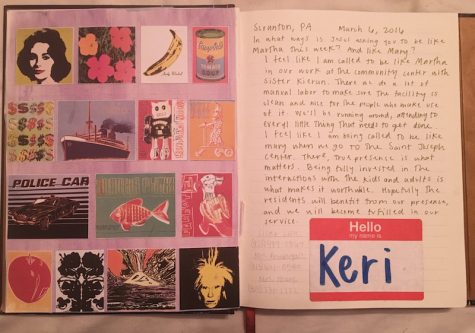 Campbell's
SOUP
POLICE CAR
Scranton, PA March 6, 2016
In what ways is Jesus asking you to be like
Martha this week? And like Mary?
I feel like I am called to be like Martha
in our work at the community center with
Sister Kieran. There we do a lot of
manual labor to make sure the facility is
clean and nice for the people who make use
of it. We'll be running around, attending to
every little thing that needs to get done.
I feel like I am being called to be like
mary when we go to the Saint Joseph
Center. There, true presence is what
matters. Being fully invested in the
interactions with the kids and adults is
what makes it worthwhile. Hopefully the
residents will benefit from our presence,
and we will become fulfilled in our
service.
Hello
my name is
Keri